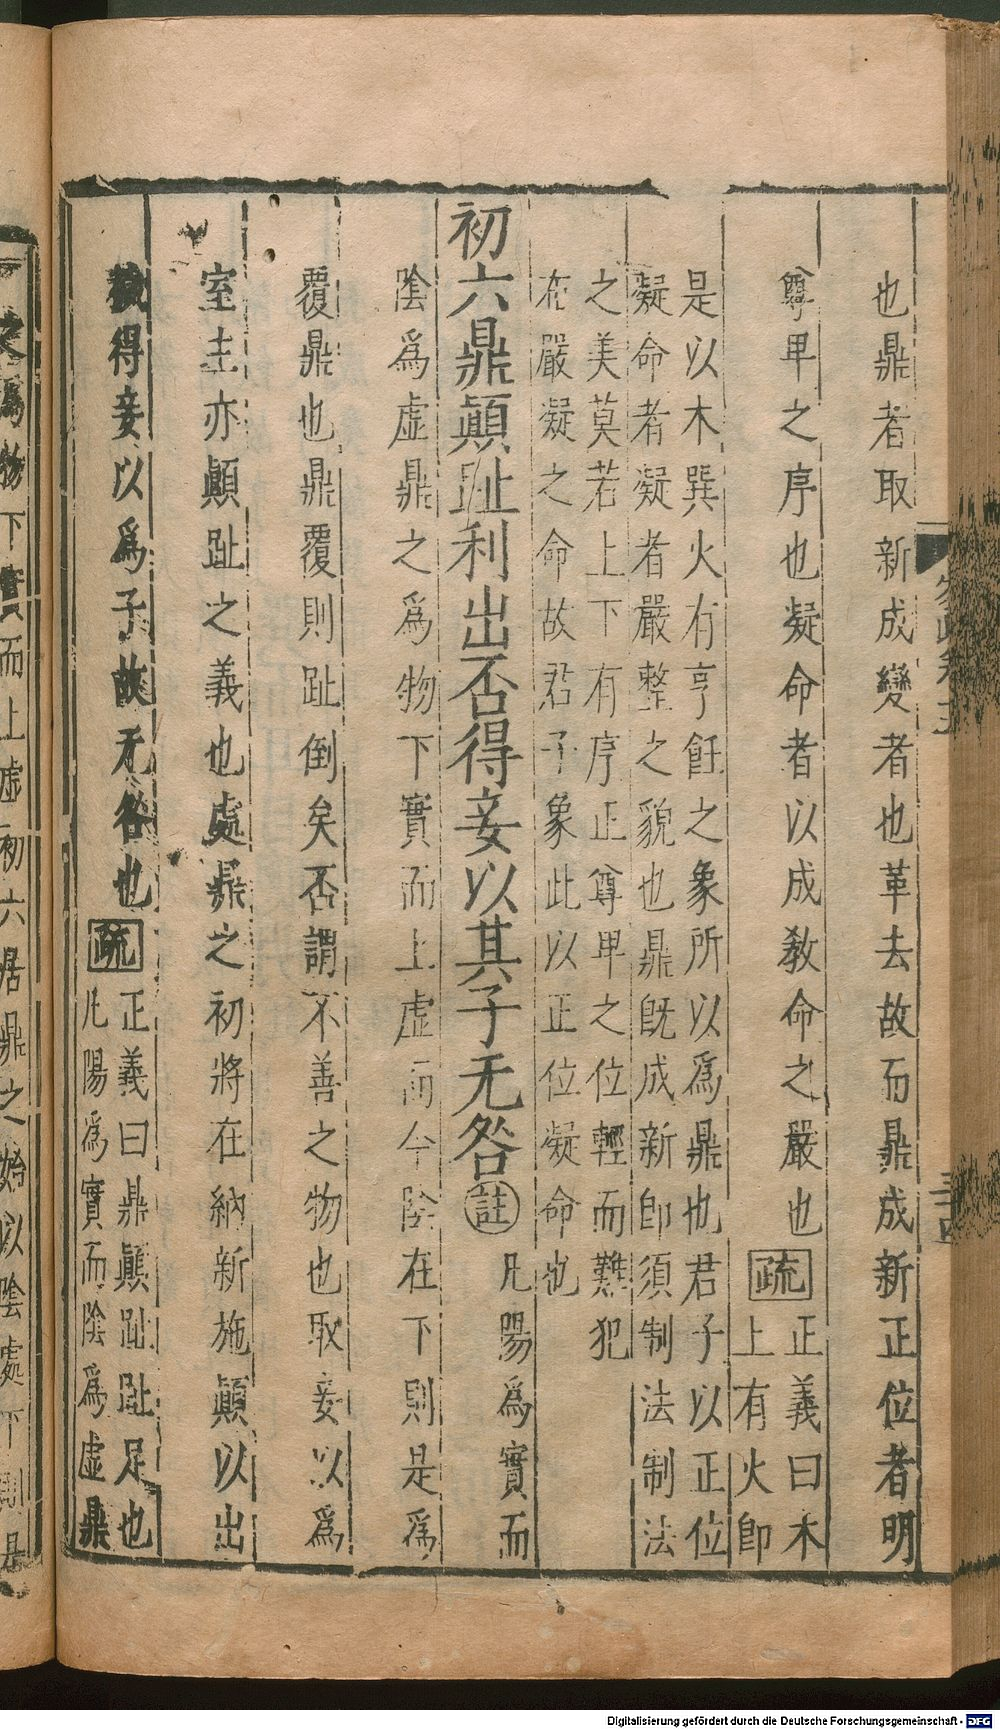 也鼎者取新成變者也革去故而鼎成新正位者明
尊卑之序也凝命者以成教命之嚴也疏正義曰木
上有火即
是以木巽火有亨飪之象所以為鼎也君子以正位
凝命者凝者嚴整之貌也鼎旣成新即須制法制法
之美莫若上下有序正尊卑之位輕而難犯
在嚴凝之命故君子象此以正位凝命也
初六鼎顛趾利出否得妾以其子无咎註凡陽為實而
陰為虛鼎之為物下實而上虛而今陰在下則是為
覆鼎也鼎覆則趾倒矣否謂不善之物也取妾以為
室主亦顛趾之義也處鼎之初將在納新施顛以出
穢得妾以為子故无咎也疏正義曰鼎顛趾趾足也
凡陽為實而陰為虛鼎
之為物下實而上虛初六居鼎之始以陰處下則是
Digitalisierung gefördert durch die Deutsche Forschungsgemeinschaft - DFG